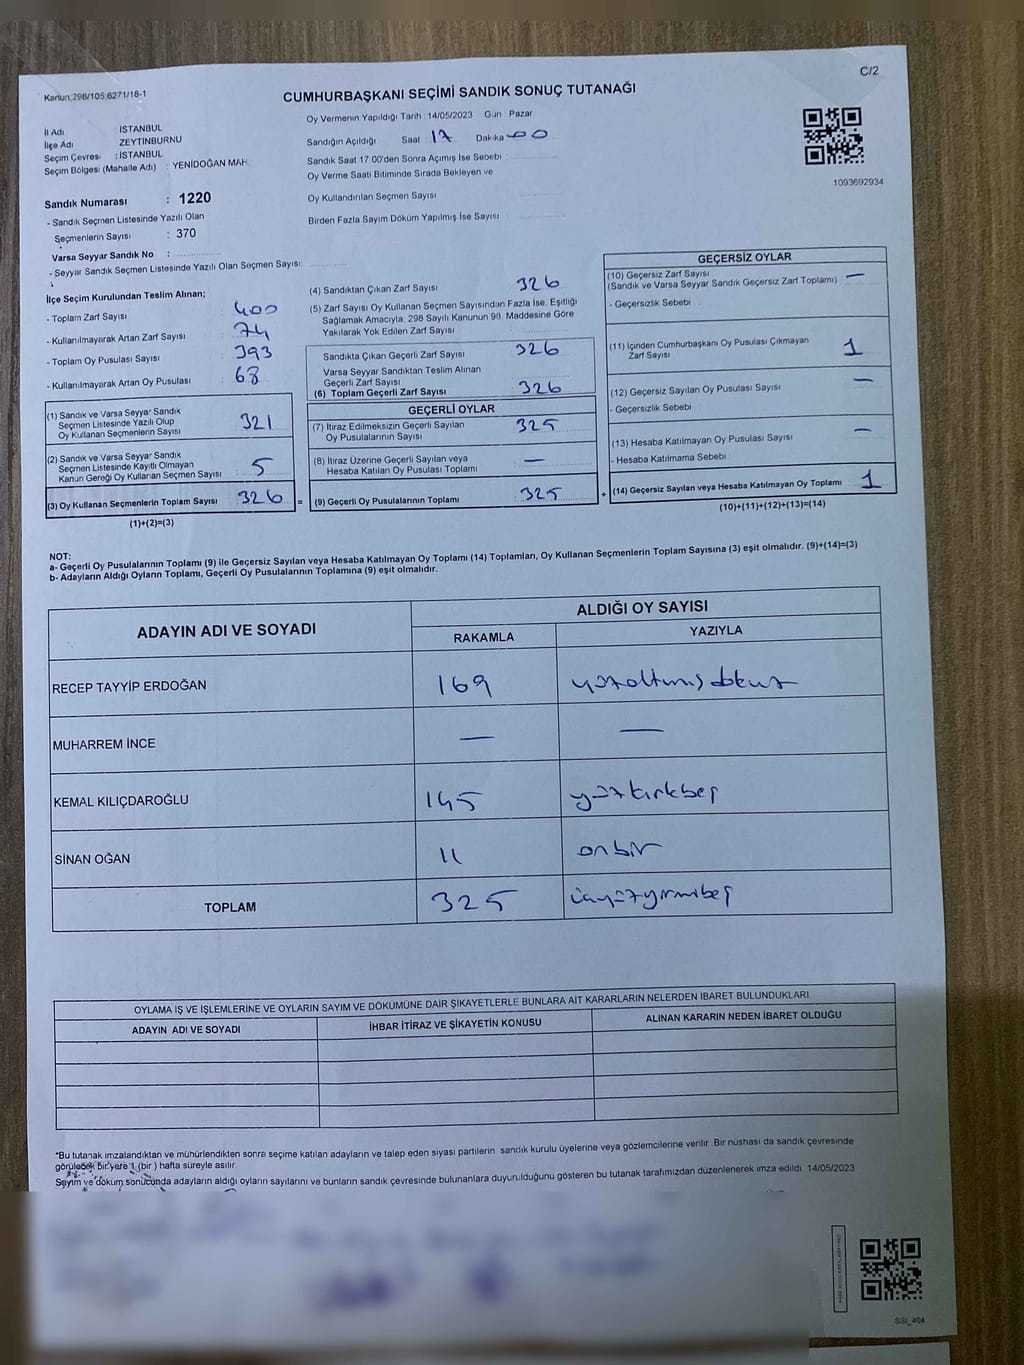 C/2
Kanun;298/105,6271/16-1
CUMHURBAŞKANI SEÇİMİ SANDIK SONUÇ TUTANAĞI
İl Adı : İSTANBUL
İlçe Adı : ZEYTİNBURNU
Seçim Çevresi : İSTANBUL
Seçim Bölgesi (Mahalle Adı) : YENİDOĞAN MAH.
Sandık Numarası : 1220
- Sandık Seçmen Listesinde Yazılı Olan
Seçmenlerin Sayısı : 370
Varsa Seyyar Sandık No :
- Seyyar Sandık Seçmen Listesinde Yazılı Olan Seçmen Sayısı:
Oy Vermenin Yapıldığı Tarih :14/05/2023 Gün : Pazar
Sandığın Açıldığı Saat : 17 Dakika : 00
Sandık Saat 17.00'den Sonra Açımış İse Sebebi :
Oy Verme Saati Bitiminde Sırada Bekleyen ve
Oy Kullandırılan Seçmen Sayısı
Birden Fazla Sayım Döküm Yapılmış İse Sayısı
1093692934
İlçe Seçim Kurulundan Teslim Alınan;
- Toplam Zarf Sayısı : 400
- Kullanılmayarak Artan Zarf Sayısı : 74
- Toplam Oy Pusulası Sayısı : 393
- Kullanılmayarak Artan Oy Pusulası : 68
(1) Sandık ve Varsa Seyyar Sandık
Seçmen Listesinde Yazılı Olup
Oy Kullanan Seçmenlerin Sayısı : 321
(2) Sandık ve Varsa Seyyar Sandık
Seçmen Listesinde Kayıtlı Olmayan
Kanun Gereği Oy Kullanan Seçmen Sayısı : 5
(3) Oy Kullanan Seçmenlerin Toplam Sayısı : 326
(1)+(2)=(3)
=
(4) Sandıktan Çıkan Zarf Sayısı : 326
(5) Zarf Sayısı Oy Kullanan Seçmen Sayısından Fazla İse, Eşitliği
Sağlamak Amacıyla; 298 Sayılı Kanunun 98. Maddesine Göre
Yakılarak Yok Edilen Zarf Sayısı
Sandıkta Çıkan Geçerli Zarf Sayısı : 326
Varsa Seyyar Sandıktan Teslim Alınan
Geçerli Zarf Sayısı
(6) Toplam Geçerli Zarf Sayısı : 326
GEÇERLİ OYLAR
(7) İtiraz Edilmeksizin Geçerli Sayılan
Oy Pusulalarının Sayısı : 325
(8) İtiraz Üzerine Geçerli Sayılan veya
Hesaba Katılan Oy Pusulası Toplamı : —
(9) Geçerli Oy Pusulalarının Toplamı : 325
+
GEÇERSİZ OYLAR
(10) Geçersiz Zarf Sayısı
(Sandık ve Varsa Seyyar Sandık Geçersiz Zarf Toplamı) : —
- Geçersizlik Sebebi
(11) İçinden Cumhurbaşkanı Oy Pusulası Çıkmayan
Zarf Sayısı : 1
(12) Geçersiz Sayılan Oy Pusulası Sayısı : —
- Geçersizlik Sebebi
(13) Hesaba Katılmayan Oy Pusulası Sayısı : —
- Hesaba Katılmama Sebebi
(14) Geçersiz Sayılan veya Hesaba Katılmayan Oy Toplamı : 1
(10)+(11)+(12)+(13)=(14)
NOT:
a- Geçerli Oy Pusulalarının Toplamı (9) ile Geçersiz Sayılan veya Hesaba Katılmayan Oy Toplamı (14) Toplamları, Oy Kullanan Seçmenlerin Toplam Sayısına (3) eşit olmalıdır. (9)+(14)=(3)
b- Adayların Aldığı Oyların Toplamı, Geçerli Oy Pusulalarının Toplamına (9) eşit olmalıdır.
ADAYIN ADI VE SOYADI
ALDIĞI OY SAYISI
RAKAMLA YAZIYLA
RECEP TAYYİP ERDOĞAN 169 yüzaltmış dokuz
MUHARREM İNCE — —
KEMAL KILIÇDAROĞLU 145 yüzkırkbeş
SİNAN OĞAN 11 onbir
TOPLAM 325 üçyüzyirmibeş
OYLAMA İŞ VE İŞLEMLERİNE VE OYLARIN SAYIM VE DÖKÜMÜNE DAİR ŞİKAYETLERLE BUNLARA AİT KARARLARIN NELERDEN İBARET BULUNDUKLARI
ADAYIN ADI VE SOYADI İHBAR İTİRAZ VE ŞİKAYETİN KONUSU ALINAN KARARIN NEDEN İBARET OLDUĞU
*Bu tutanak imzalandıktan ve mühürlendikten sonra seçime katılan adayların ve talep eden siyasi partilerin sandık kurulu üyelerine veya gözlemcilerine verilir. Bir nüshası da sandık çevresinde
görülecek bir yere 1 (bir ) hafta süreyle asılır.
Sayım ve döküm sonucunda adayların aldığı oyların sayılarını ve bunların sandık çevresinde bulunanlara duyurulduğunu gösteren bu tutanak tarafımızdan düzenlenerek imza edildi. 14/05/2023
SSI_404